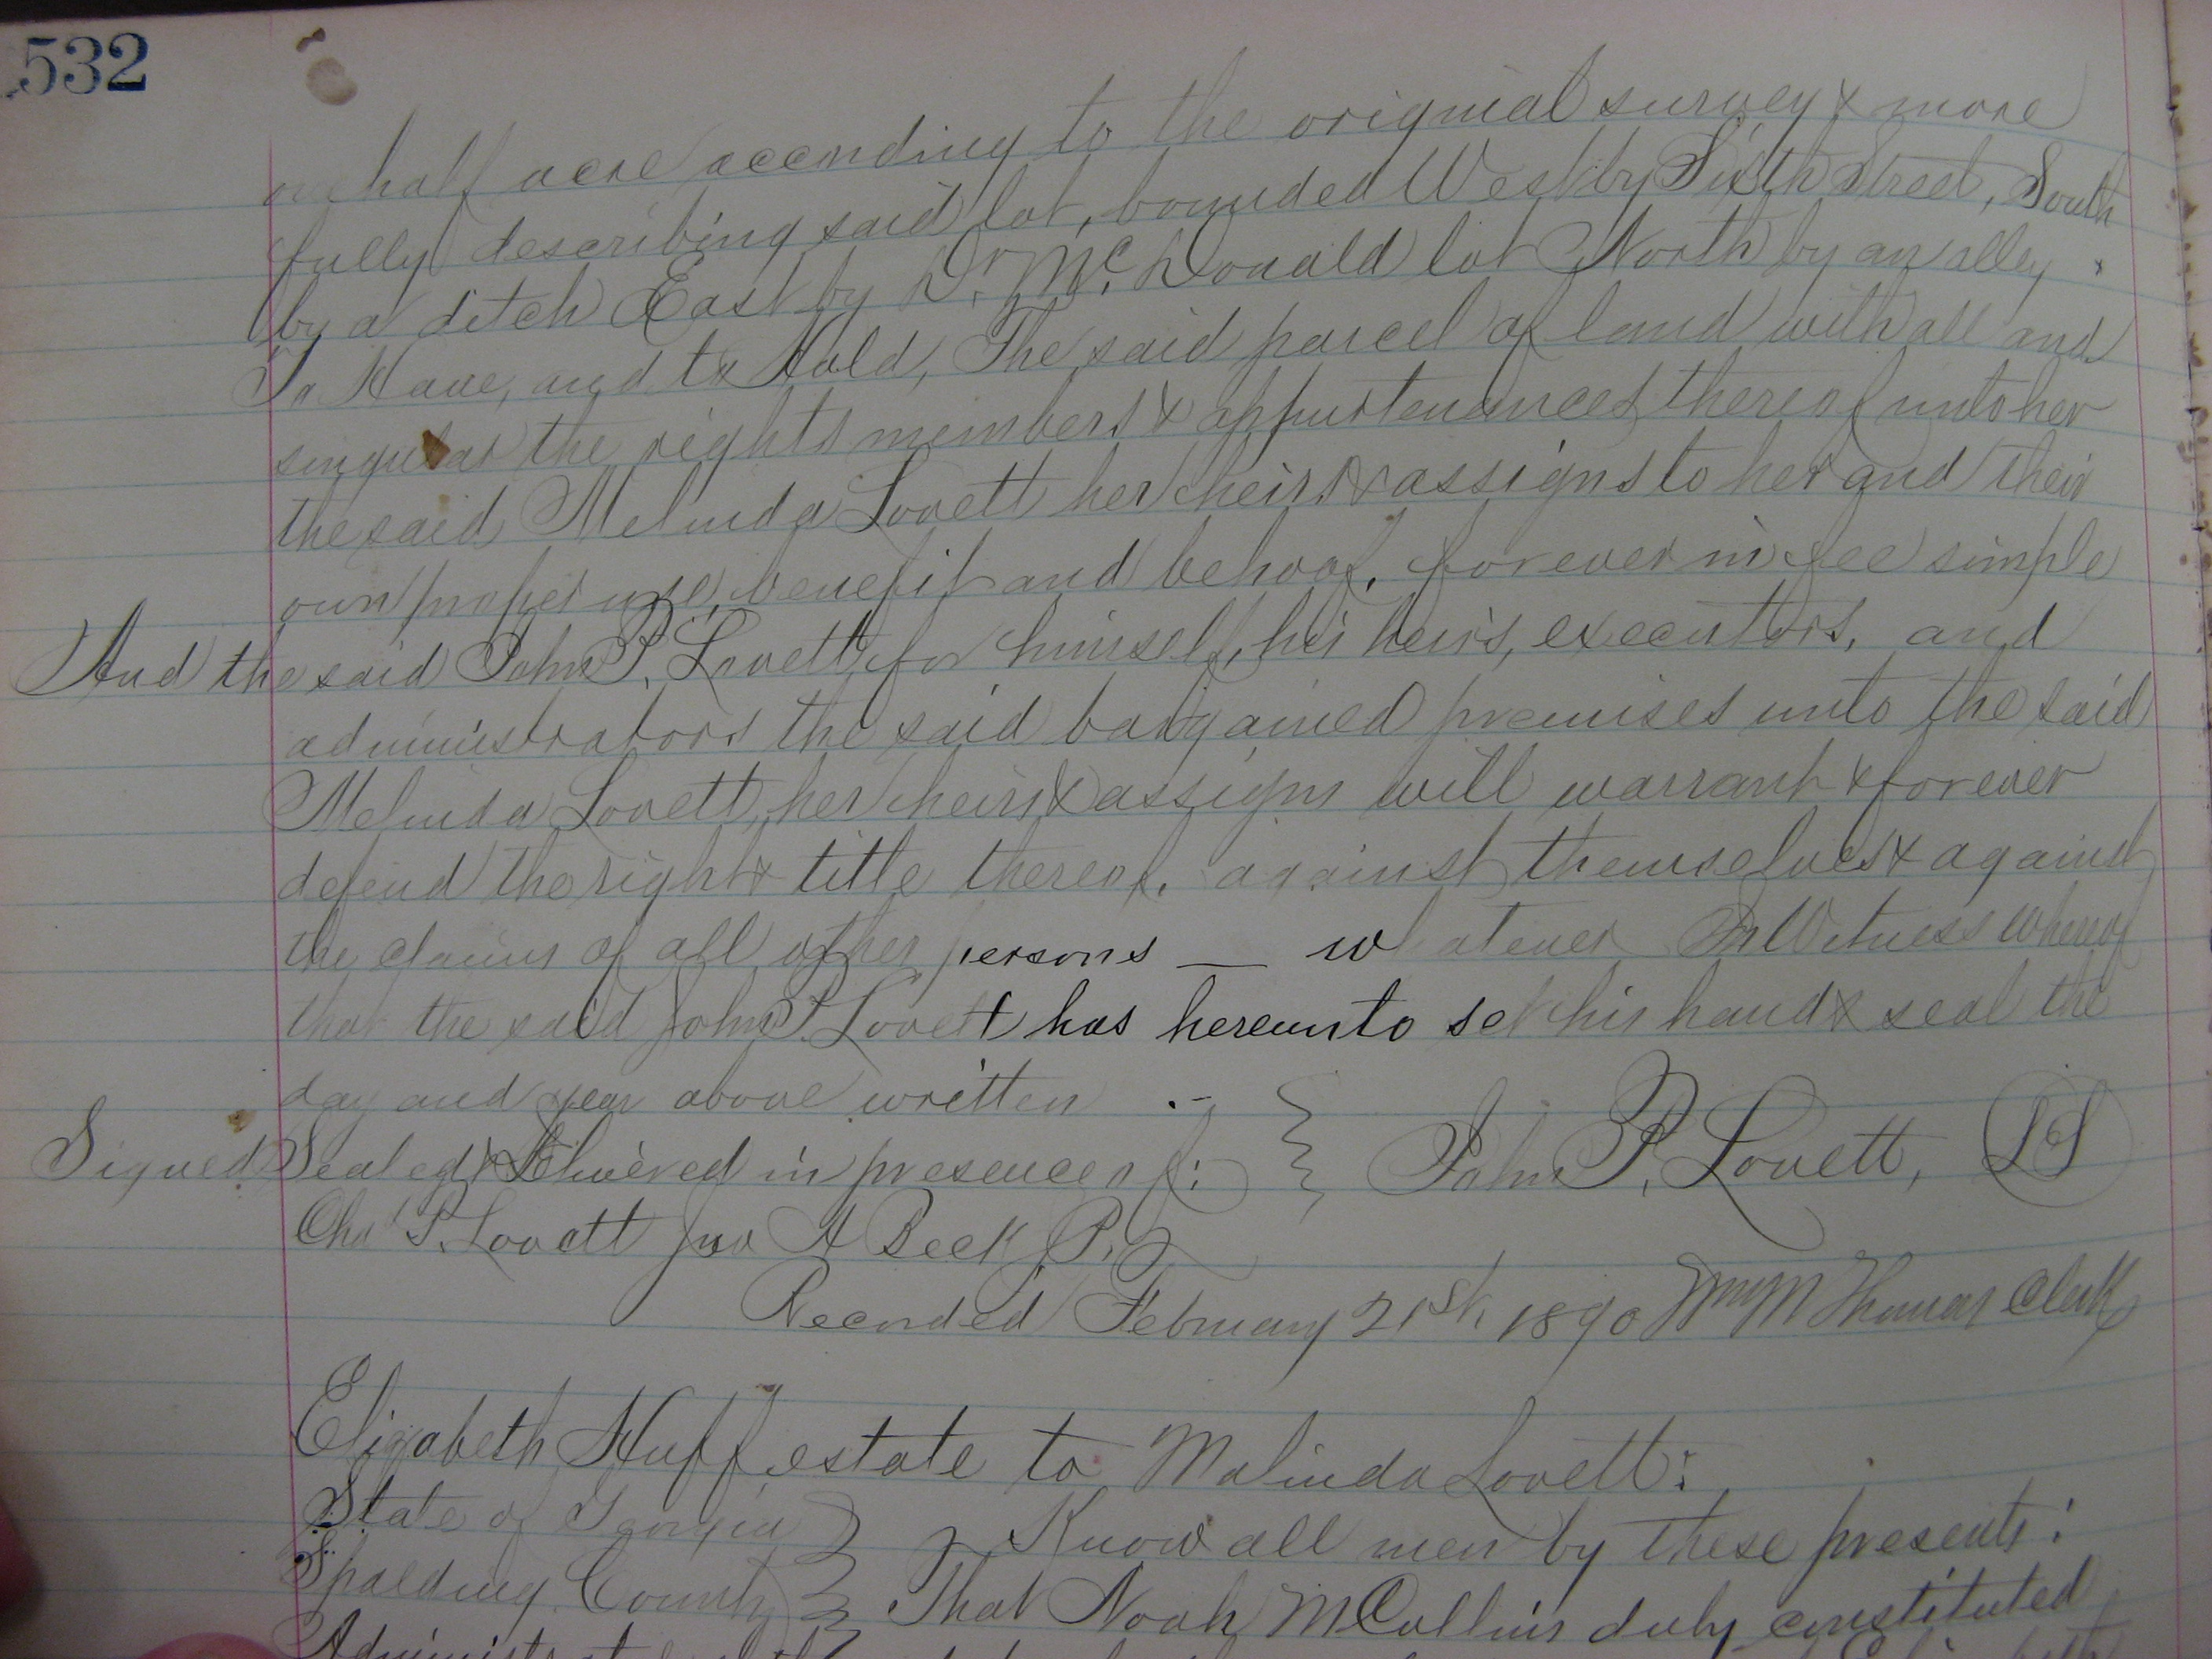 532
one half acre according to the original survey & more
fully describing said lot, bounded West by Sixth Street, South
by a ditch East by Dr. Mc. Donald lot North by an alley &
To Have, and to Hold, The said parcel of land with all and
singular the rights members & appurtenances thereof unto her
the said Melinda Lovett her heirs & assigns to her and their
own proper use, benefit and behoof, forever in fee simple
And the said John P. Lovett for himself, his heirs, executors, and
administrators the said bargained premises unto the said
Melinda Lovett, her heirs & assigns will warrant & forever
defend the right & title thereof, against themselves & against
the claims of all other persons — whatever In Witness whereof
that the said John P. Lovett has hereunto set his hand & seal the
day and year above written .-
Signed Sealed & Delivered in presence of: } John P. Lovett, LS
Chas P. Lovett Jno A Beck J.P.
Recorded February 21st, 1890 Wm M Thomas Clerk
Elizabeth Huff estate to Malinda Lovett:
State of Georgia } Know all men by these presents:
Spalding County } That Noah McCullins duly constituted